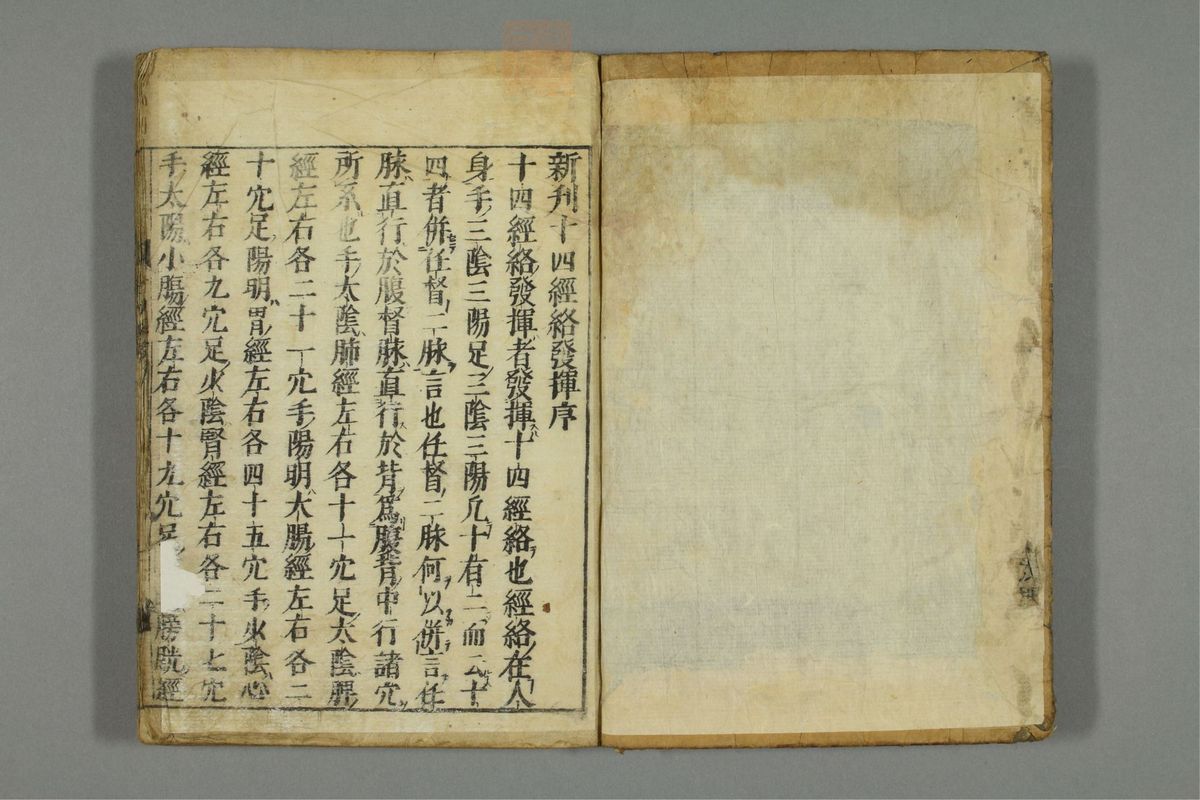 新刋十四經絡發揮序
十四經絡發揮者發揮十四經絡也經絡在人
身手三陰三陽足三陰三陽凢十有二而云十
四者併任督二脉言也任督二脉何以併言任
脉直行於腹督脉直行於背爲腹背中行諸穴
所系也手太陰肺經左右各十一穴足太陰脾
經左右各二十一穴手陽明大腸經左右各二
十穴足陽明胃經左右各四十五穴手少陰心
經左右各九穴足少陰腎經左右各二十七穴
手太陽小腸經左右各十九穴足
膀胱經